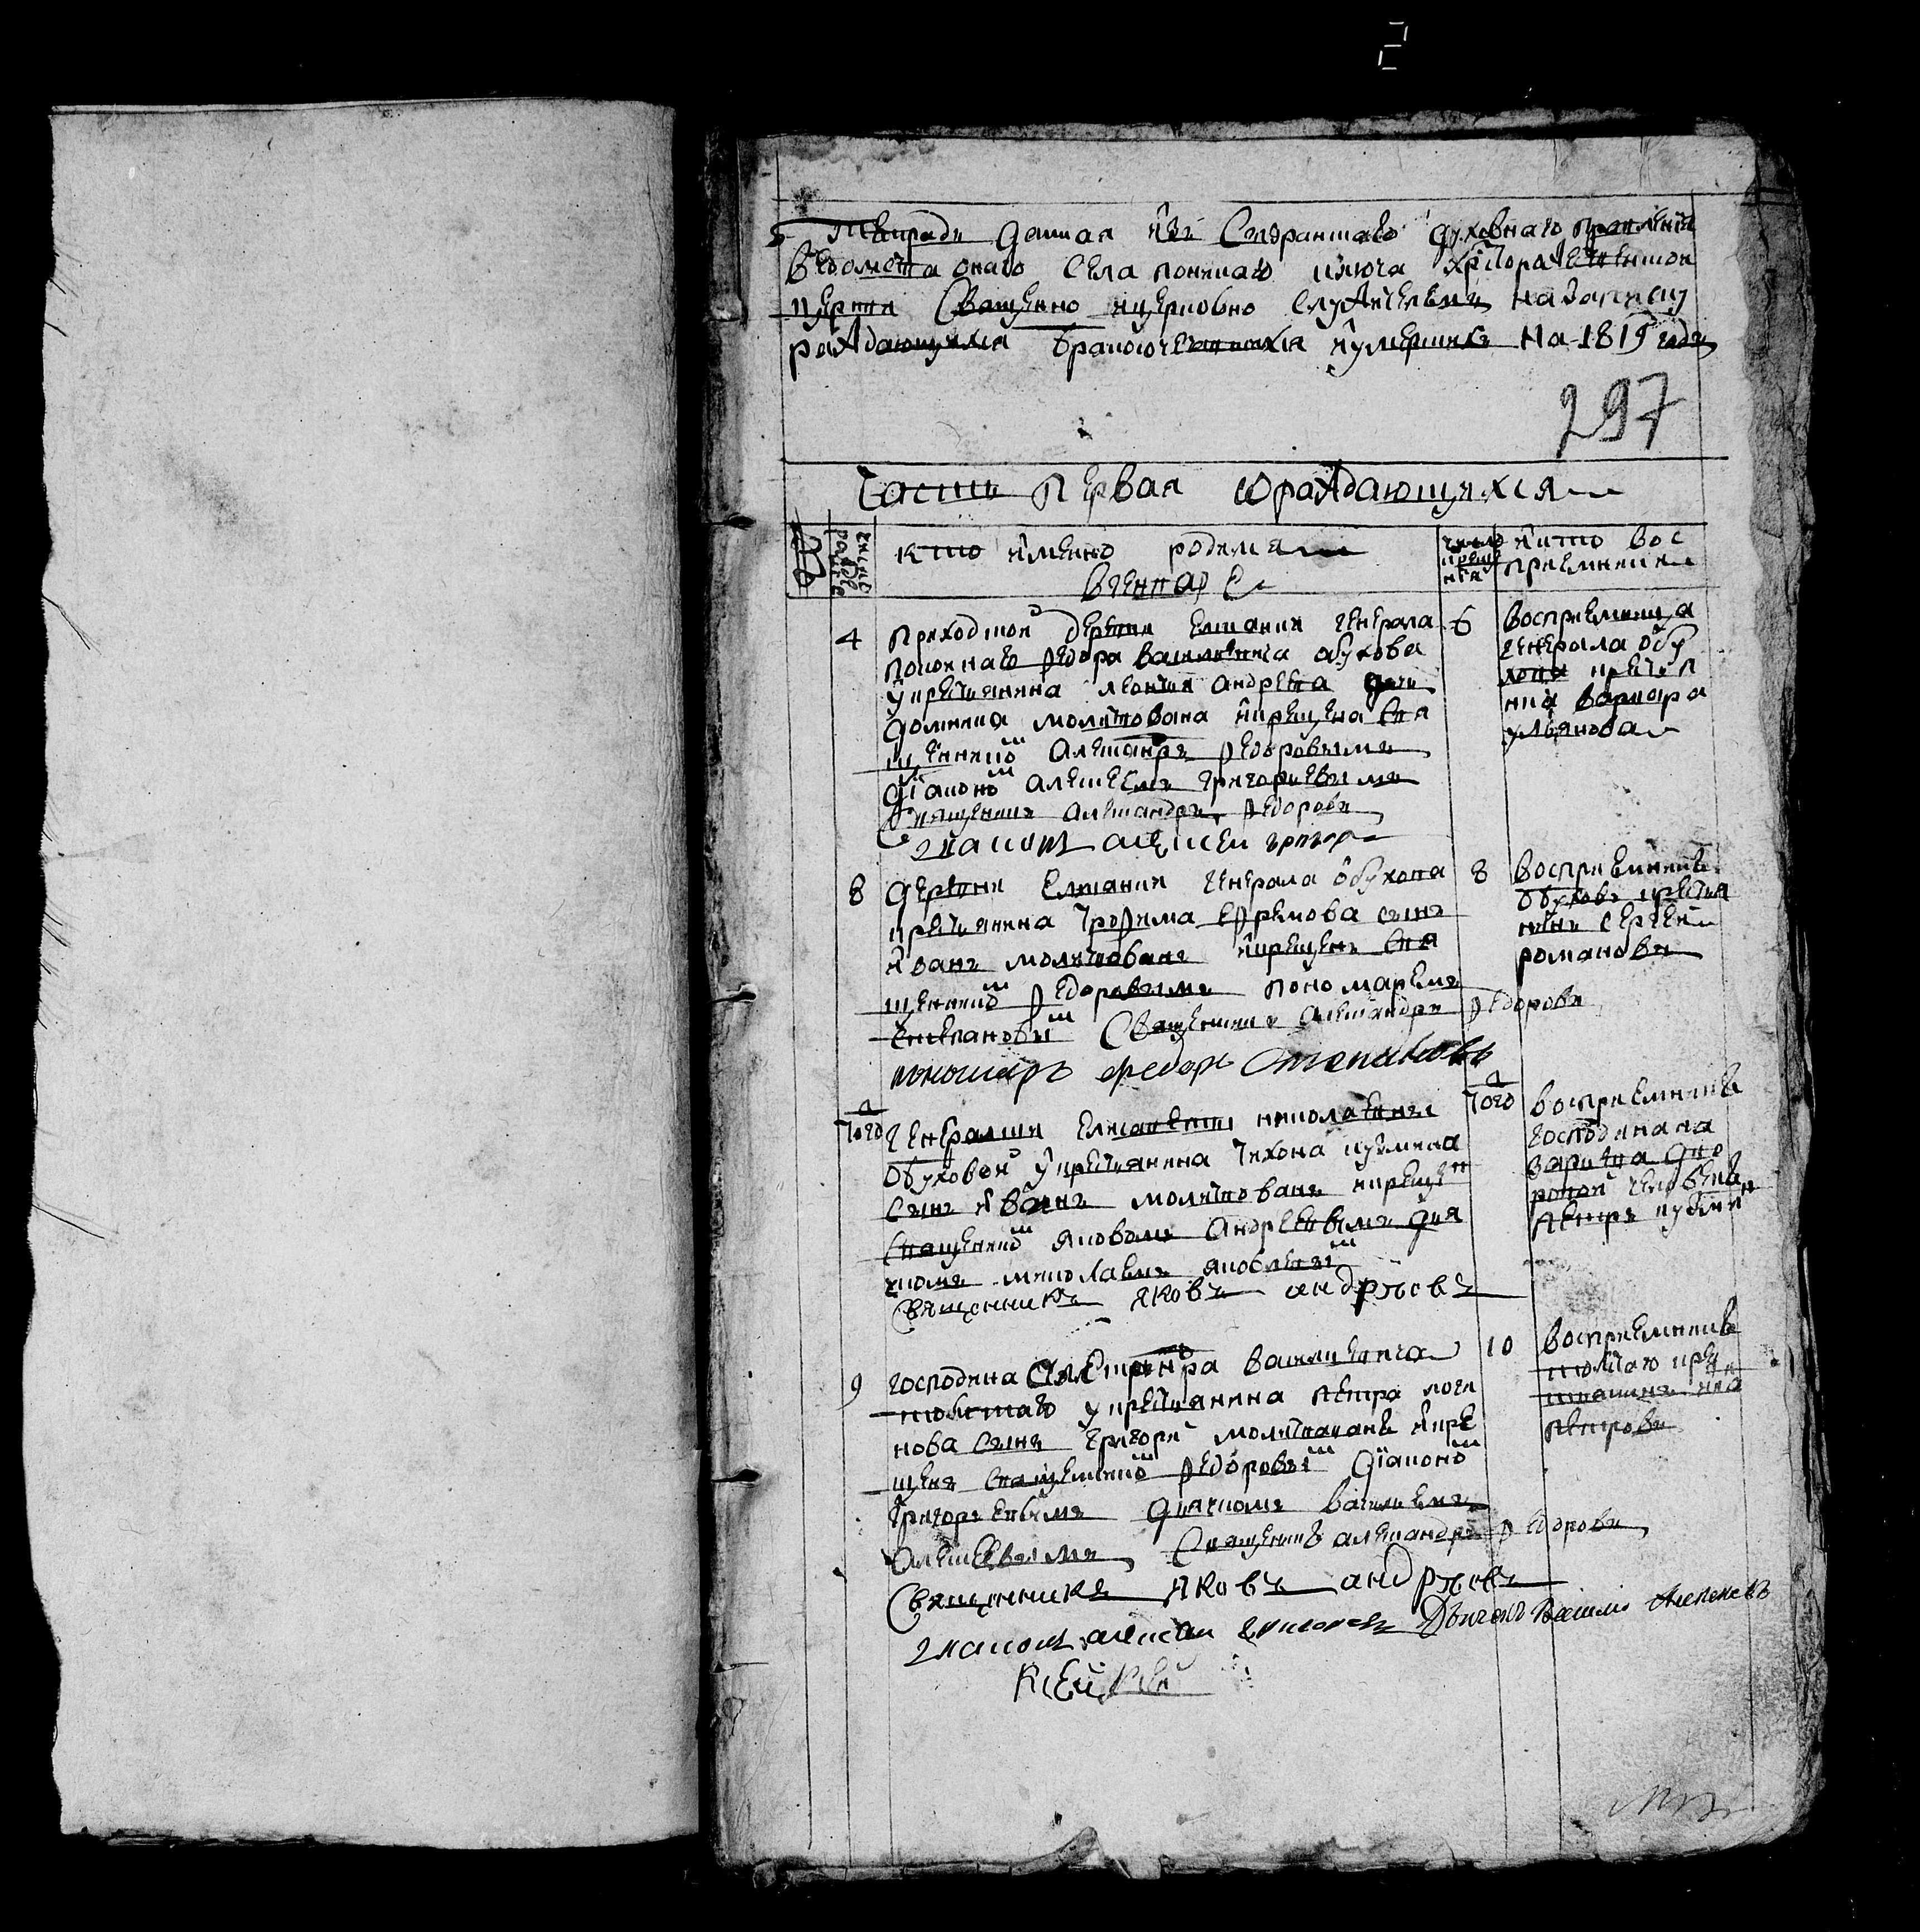 Тетрадь данная из Сызранскаго духовнаго правления
ведомства онаго села конскаго ключа христорождественской
церкви Священно ицерковно служителямъ на записку
раждающихся бракосочетавшихся иумершихъ На 1819 годъ
297
Часть Первая ораждающихся
число рожде
кто именно родился
число крещения
икто вос
приемники
Вгенваре
4 приходской деревни генерала
Федора Васильевича обухова
укрестьянина леонтия андреева дочь
домника молитвована икрещена свя
щенником Александръ Федоровымъ
Диаконом алексеемъ григорьевымъ
Священникъ александръ Федоровъ
диакон алексей григор
6 восприемница
генерала обу
хова крестья
нка варвара
ульянова
8 деревни генерала обухова
крестьянина Трофима ефремова сынъ
иванъ молитвованъ икрещенъ свя
щенником Федоровымъ пономаремъ
степановым Священникъ александръ Федоровъ
пономарь федоръ Степановъ
8 восприемникъ
обуховъ крестья
нинъ сергей
романовъ
Того Генеральши елисаветы николаевны
обуховой укрестьянина Тихона кузмина
сынъ иванъ молитвованъ икрещен
священником яковомъ Андреевымъ дья
чкомъ яковлевым
Священникъ яковъ андрѣевъ
Того восприемникъ
господина на
заръева дво
ровой человекъ
петръ кузмин
9 господина Александра васильевича
толстаго укрестьянина петра логи
нова сынъ григорей молитвованъ икре
щенъ священником Федоровым диаконом
григорьевымъ дьячкомъ васильемъ
Алексеевымъ Священникъ александръ Федоровъ
Священникъ яковъ андрѣевъ
диакон алексей григорьевъ Дьячекъ Василей Алексеевъ
10 восприемникъ
толстаго кре
стьянинъ
петровъ